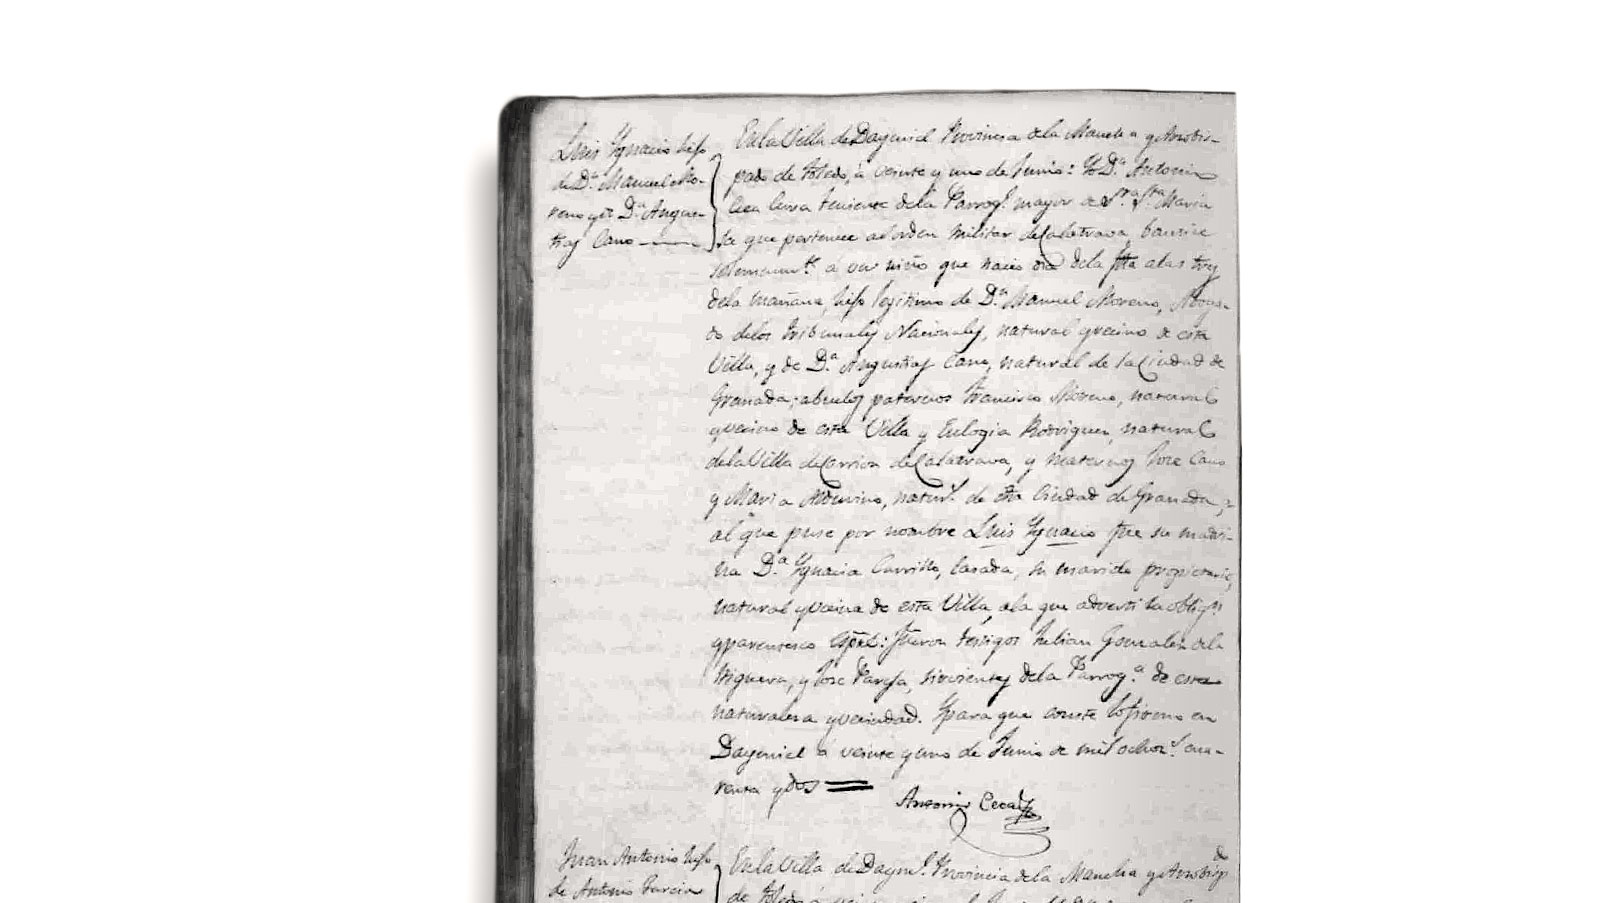 Luis Ygnacio hijo
de Dn. Manuel Mo-
reno y de Da. Angus-
tias Cano
En la Villa de Daymiel Provincia de la Mancha y Arzobis-
pado de Toledo, á veinte y uno de Junio: Yo Dn. Antonio
Ceca Cura teniente de la Parroqa. mayor de Sta. Maria
la que pertenece al orden Militar de Calatrava, bautice
solemnemte. á un niño que nacio dia de la fha a las tres
de la mañana, hijo legitimo de Dn. Manuel Moreno, Aboga-
do de los tribunales Nacionales, natural y vecino de esta
Villa, y de Da. Angustias Cano, natural de la Ciudad de
Granada; abuelos paternos Francisco Moreno, natural
y vecino de esta Villa y Eulogia Rodriguez, natural
de la Villa de Carrion de Calatrava, y maternos Jose Cano
y Maria natur.s de dha Ciudad de Granada;
al que puse por nombre Luis Ygnacio fue su madri-
na Da. Ygnacia Carrillo, casada, su marido propietario,
natural y vecina de esta Villa, a la que adverti la obligon.
y parentesco espal: fueron testigos Julian Gonzalez de la
Higuera, y Jose Pareja, sirvientes de la Parroqa. de esta
naturaleza y vecindad. Y para que conste lo firmo en
Daymiel á veinte y uno de Junio de mil ochos. cua-
renta y dos
Antonio Ceca
Juan Antonio hijo
de Antonio Garcia
En la Villa de Dayml. Provincia de la Mancha y Arzobispdo
de Toledo á